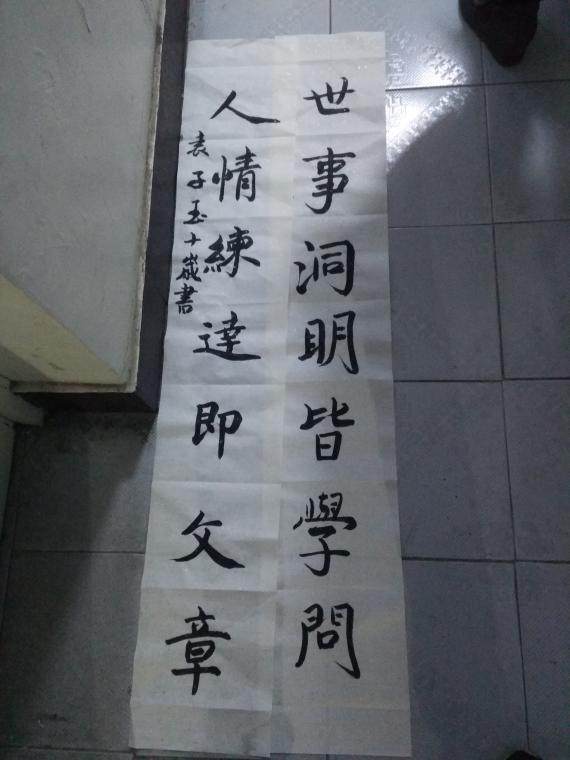 世事洞明皆學問
人情練達即文章
袁子玉十歲書